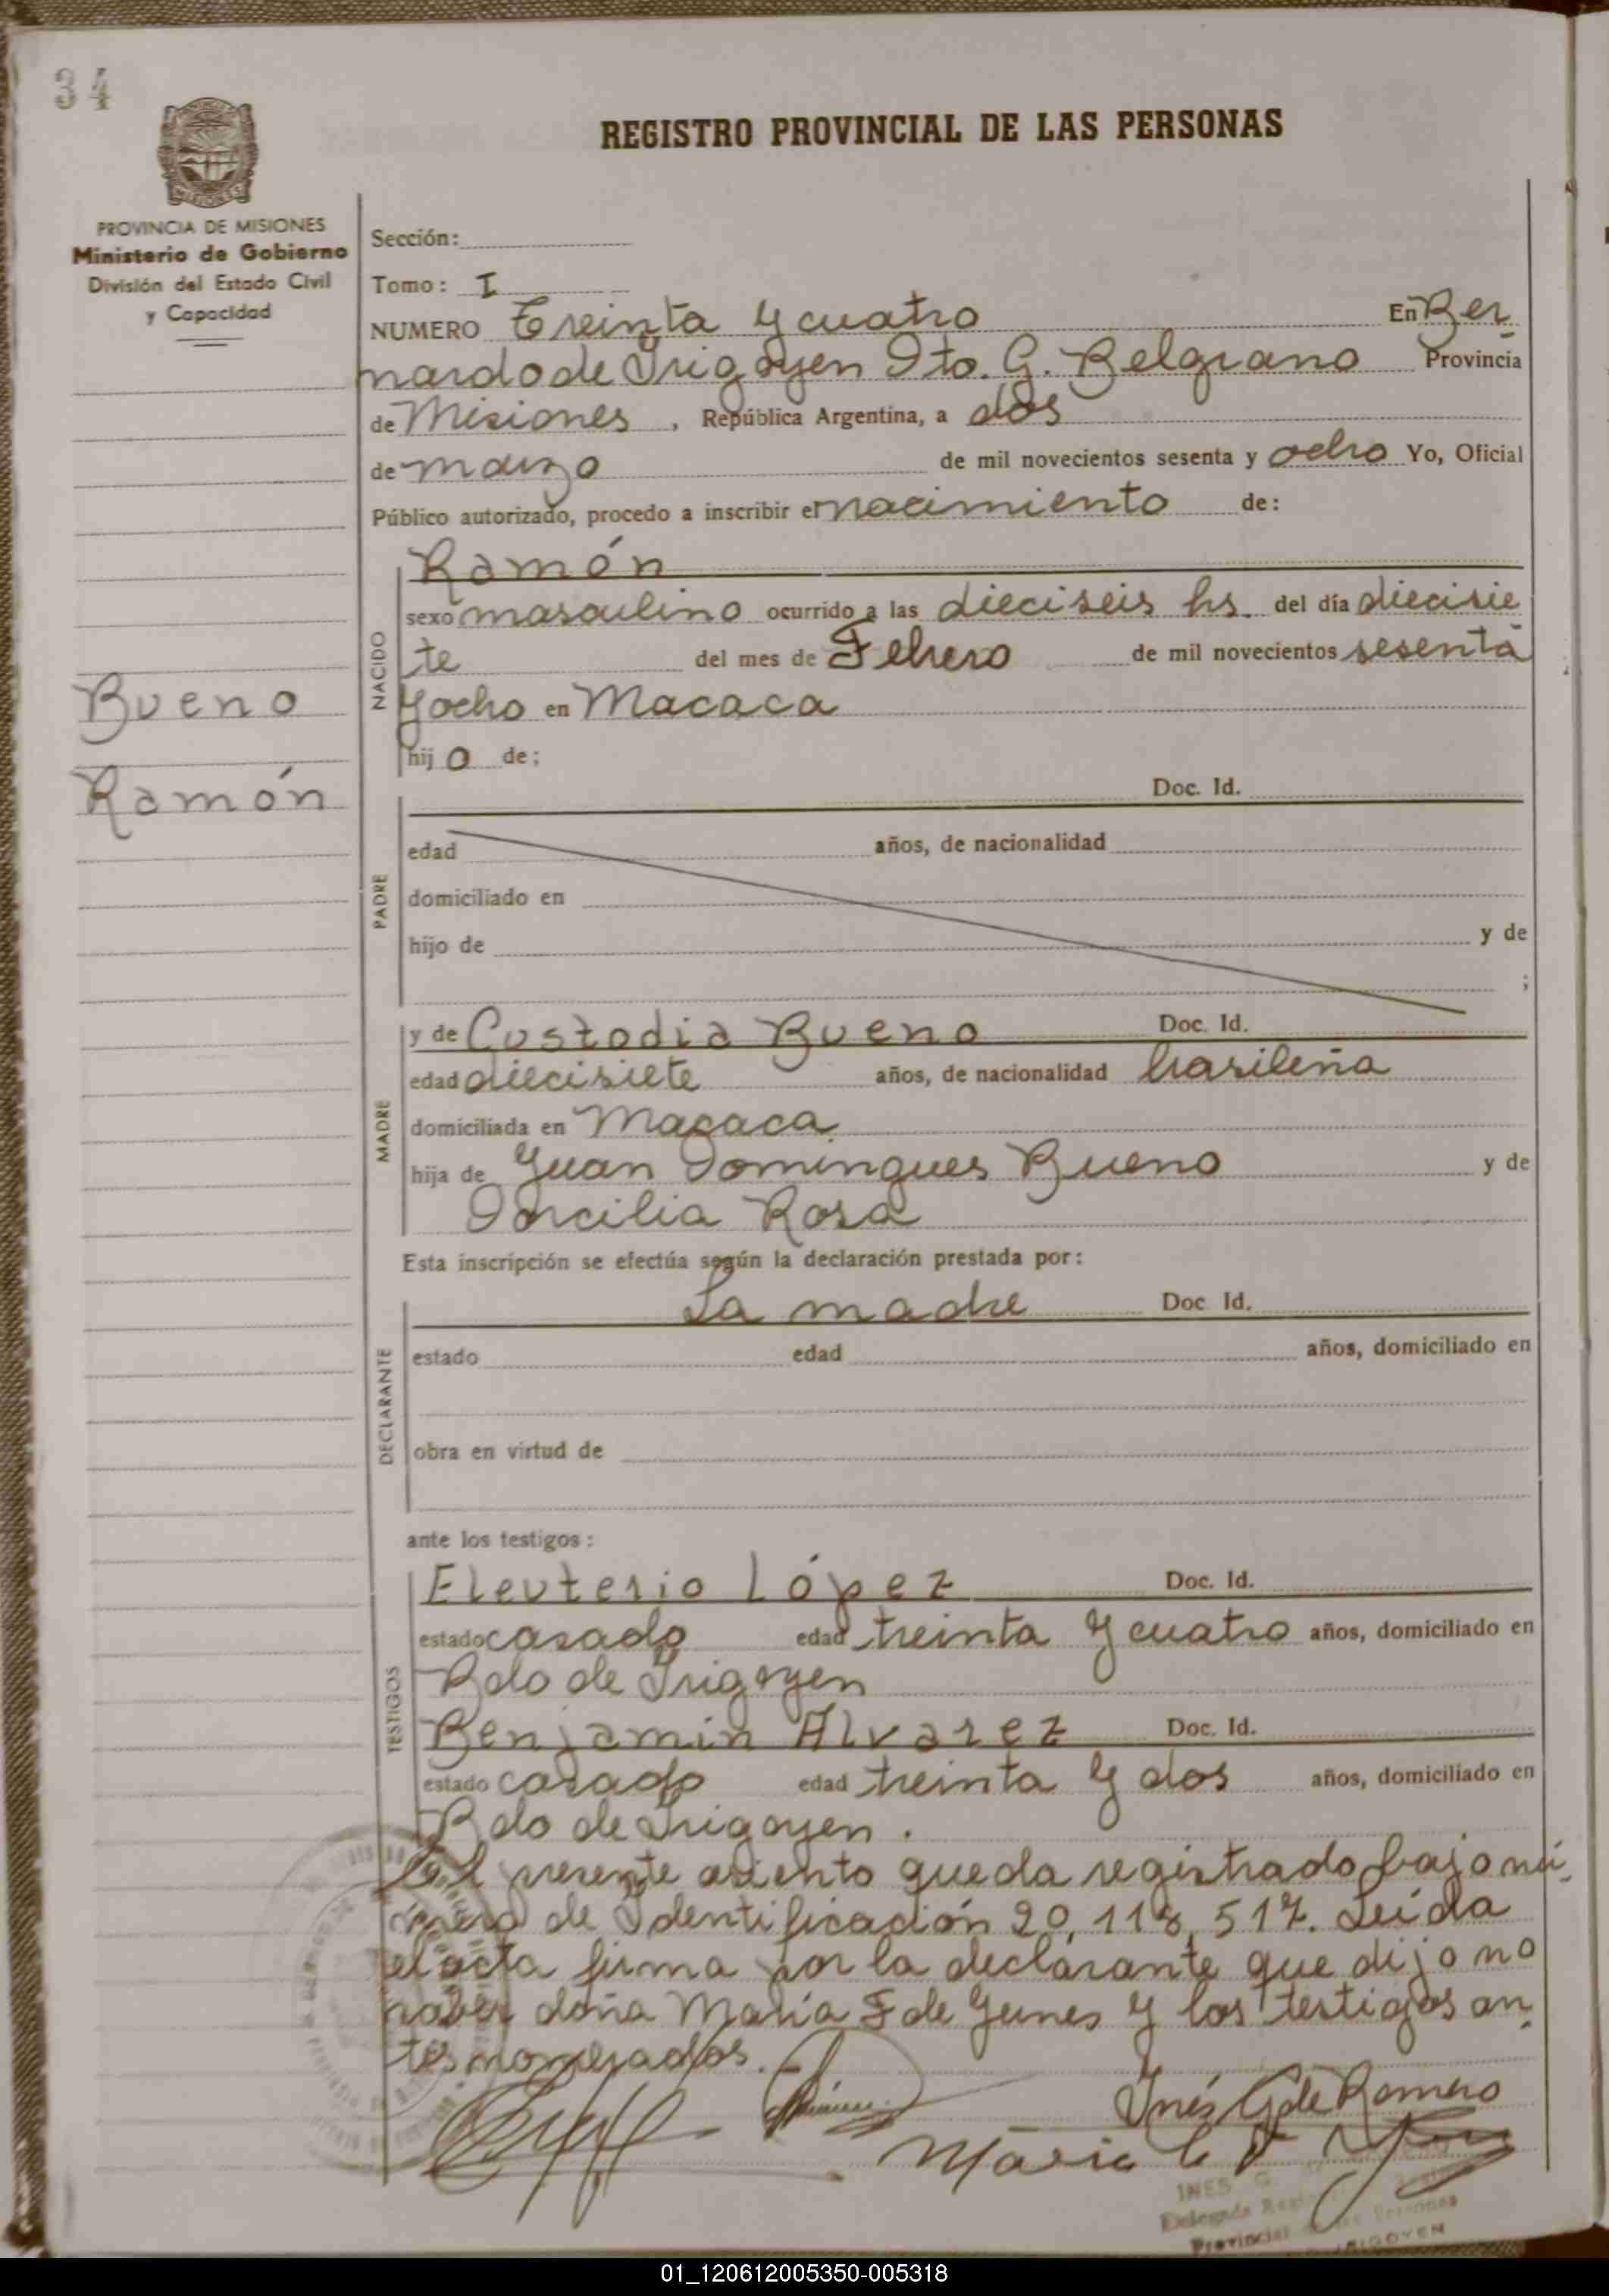 34
REGISTRO PROVINCIAL DE LAS PERSONAS
PROVINCIA DE MISIONES
Ministerio de Gobierno
División del Estado Civil
y Capacidad
Sección:
Tomo: I
NUMERO Treinta y cuatro En Ber
nardo de Irigoyen Dto. G. Belgrano Provincia
de Misiones, República Argentina, a dos
de marzo de mil novecientos sesenta y ocho Yo, Oficial
Público autorizado, procedo a inscribir el nacimiento de:
Bueno
Ramón
NACIDO
Ramón
sexo masculino ocurrido a las dieciseis hs. del día diecisie
te del mes de Febrero de mil novecientos sesenta
y ocho en Macaca
hij o de;
PADRE
Doc. Id.
edad años, de nacionalidad
domiciliado en
hijo de y de
;
MADRE
y de Custodia Bueno Doc. Id.
edad diecisiete años, de nacionalidad brasileña
domiciliada en Macaca
hija de Juan Domingues Bueno y de
Dorcilia Rosa
Esta inscripción se efectúa según la declaración prestada por:
DECLARANTE
La madre Doc. Id.
estado edad años, domiciliado en
obra en virtud de
ante los testigos:
TESTIGOS
Eleuterio López Doc. Id.
estado casado edad treinta y cuatro años, domiciliado en
Bdo de Irigoyen
Benjamin Alvarez Doc. Id.
estado casado edad treinta y dos años, domiciliado en
Bdo de Irigoyen.
El presente asiento queda registrado bajo nú
mero de Identificación 20,118,517. Leída
el acta firma por la declarante que dijo no
saber doña María F de Yunes y los testigos an
tes nombrados.
Inés G de Romero
Maria
INES G.
Delegada
Provincial Personas
IRIGOYEN
01_120612005350-005318